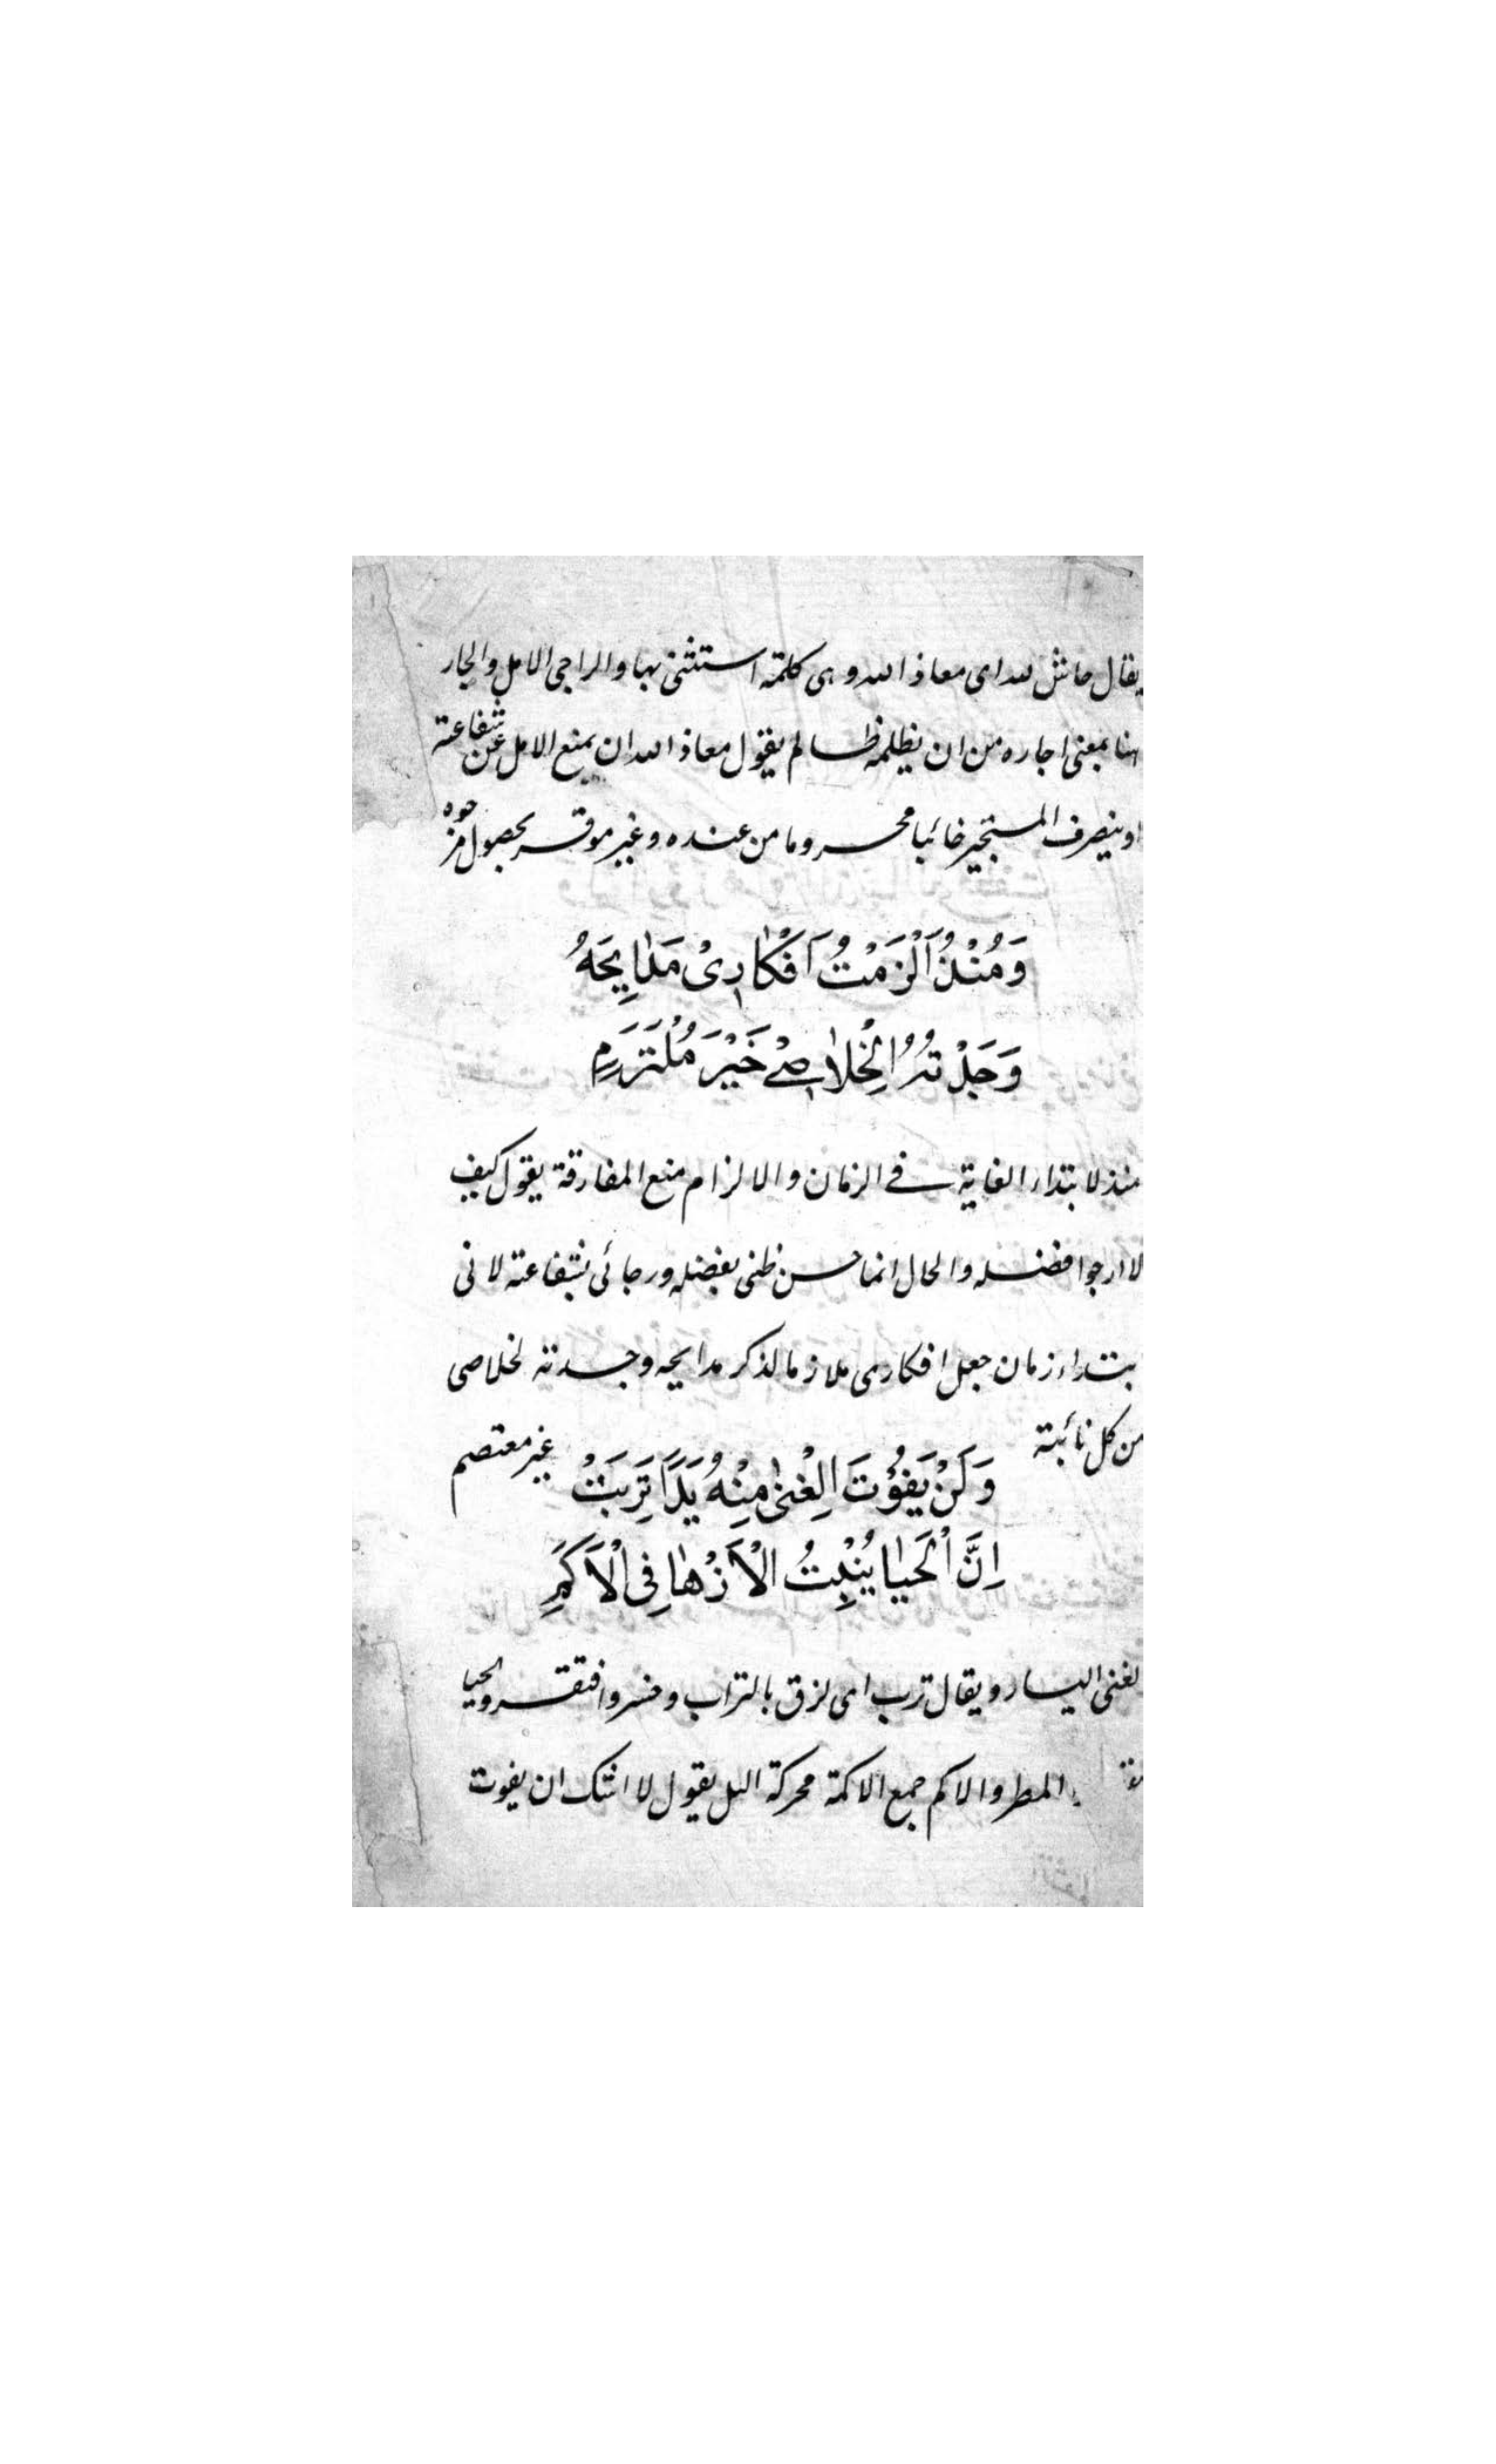 يقال حاش لله اى معاذ الله وهى كلمة استثنى بها والراجى الامل والجار
هنا بمعنى اجاره من ان يظلمه ظالم يقول معاذ الله ان يمنع الامل عن شفاعته
او ينصرف المستجير خائبا محروما من عنده وغير موقر بحصول
وَمُنْذُ اَلْزَمْتُ اَفْكَارِىْ مَدَايِحَهُ
وَجَدْتُهُ لِخَلَاصِىْ خَيْرَ مُلْتَزَمِ
منذ لابتداء الغاية فى الزمان والالزام منع المفارقة يقول كيف
لا ارجوا فضله والحال انما حسن ظنى بفضله ورجائى بشفاعته لانى
بتداء زمان جعل افكارى ملازما لذكر مدايحه وجدته لخلاصى
من كل نائبة
غير معتصم
وَلَنْ يَفُوْتَ الْغِنىٰ مِنْهُ يَدًا تَرِبَتْ
اِنَّ الْحَيَا يُنْبِتُ الْاَزْهَا فِى الْاَكَمِ
لغنى اليسار ويقال ترب اى لزق بالتراب وخسر وافتقر والحيا
المطر والاكم جمع الاكمة محركة التل يقول لا اشك ان يفوت